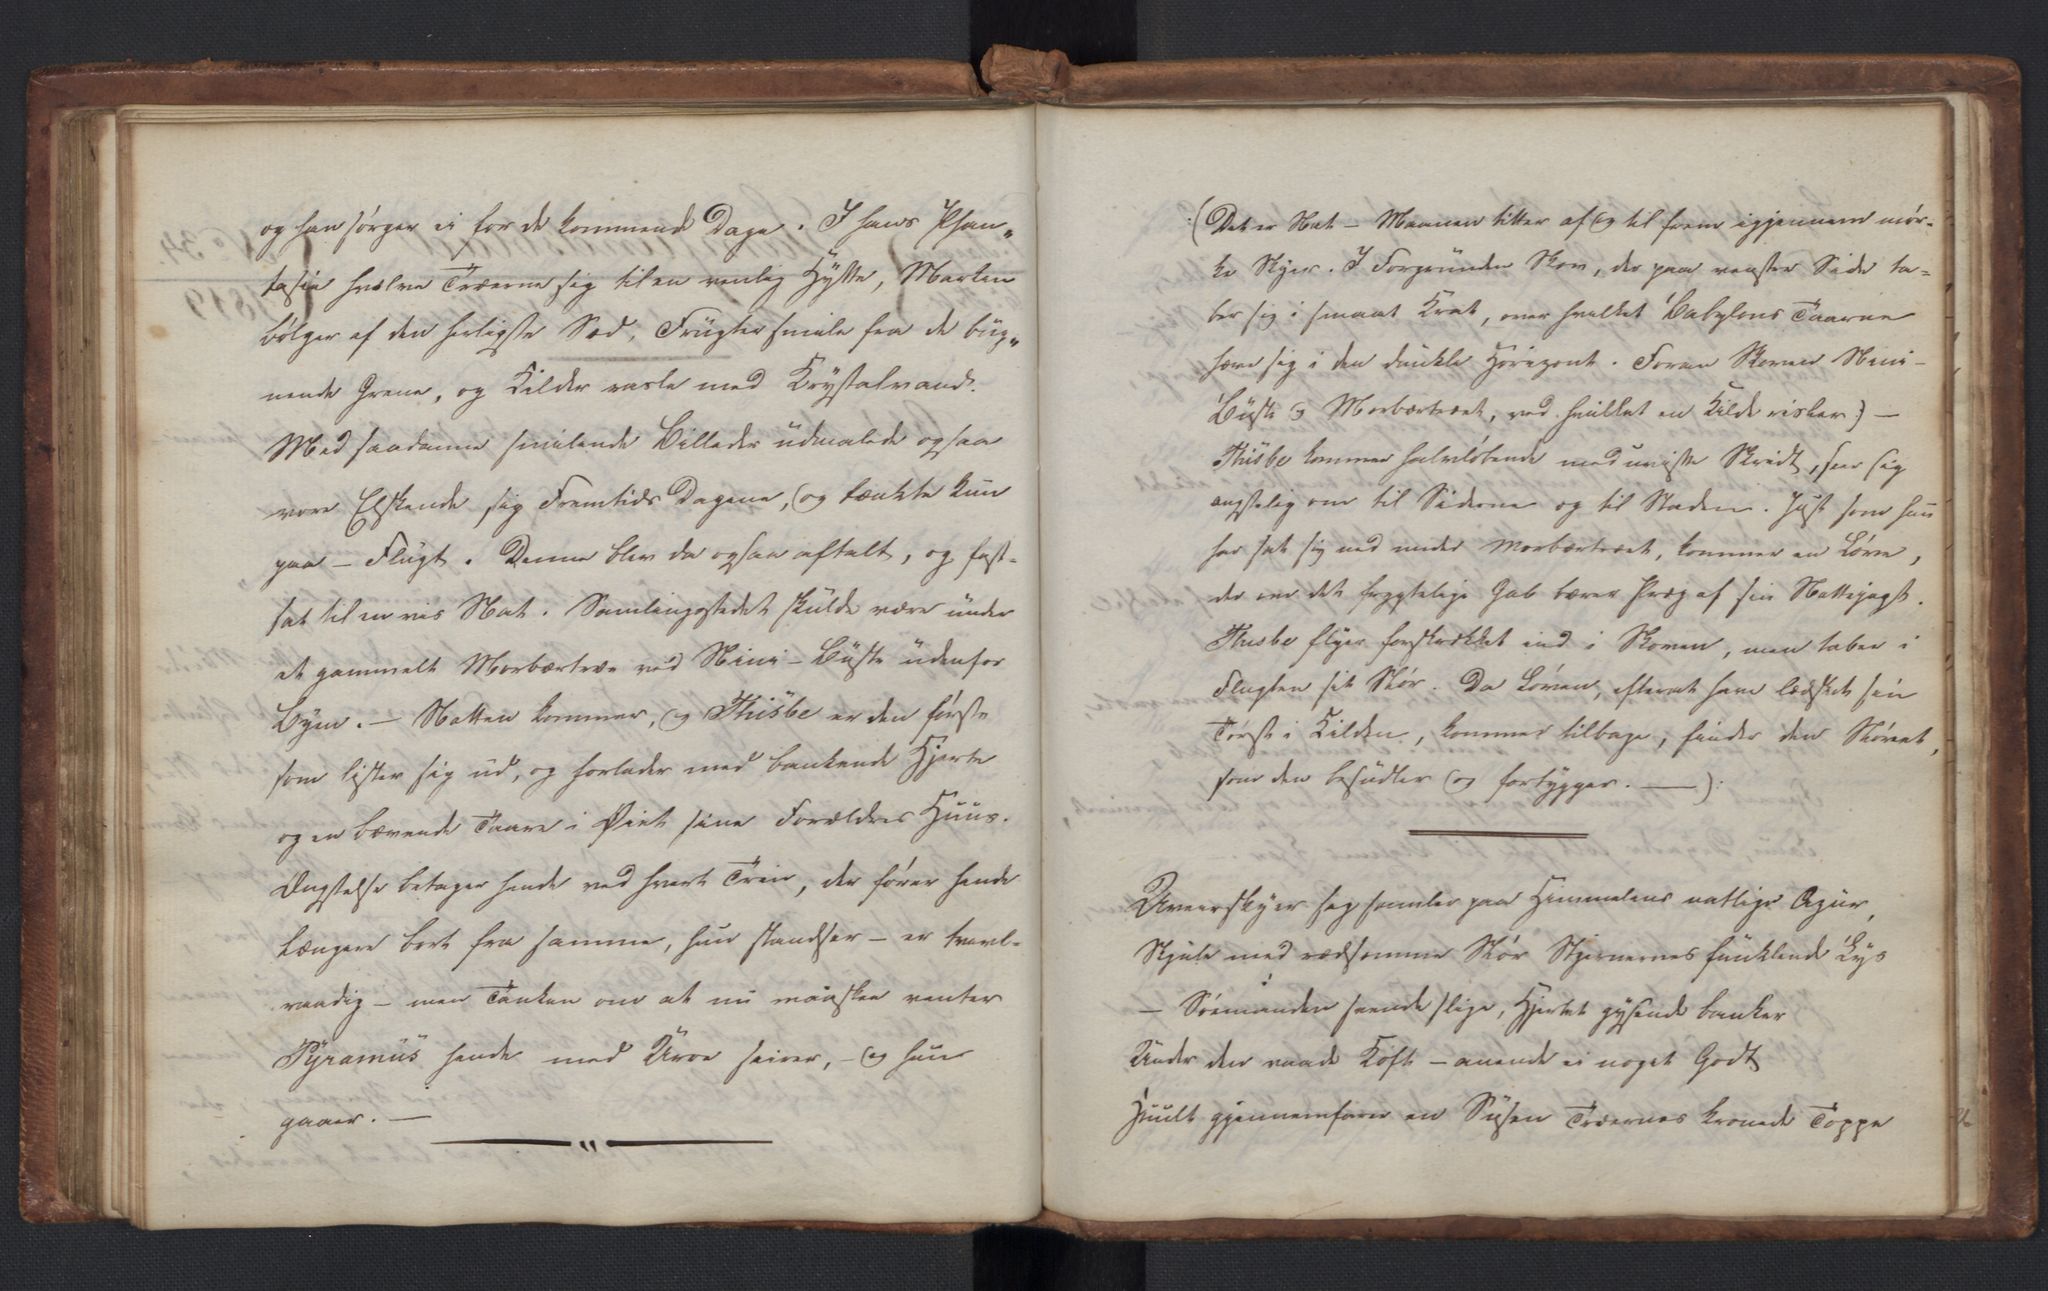 og han sørger ei for de kommende Dage. I hans Phan„
tasie hvælve Træerne sig til en venlig Hytte, Marken
bølger af den herligste Sæd, Frügter smile fra de büg„
nende Grene, og Kilder rasle med Krystalvand.
Med saadanne smilende Billeder üdmalede ogsaa
vore Elskende sig Fremtids Dagene, og tænkte kun
paa – Flügt. Denne blev da ogsaa aftalt, og fast-
sat til en vis Nat. Samlingsstedet skülde være ünder
et gammelt Morbærtræ ved Nini-Büste üdenfor
Byen. – Natten kommer, og Thisbe er den første
som lister sig üd, og forlader med bankende Hjerte
og en bævende Taare i Øiet sine Forældres Huus.
Ængstelse betager hende ved hvert Trin, der fører hende
længere bort fra samme, hun standser – er tvivl-
raadig – men Tanken om at nu maaskee venter
Pyramüs hende med Uroe seirer, – og hun
gaaer. –
:(Det er Nat – Maanen titter af og til frem igjennem mør-
ke Skyer. I Forgründen Skov, der paa venstre Side ta-
ber sig i smaat Krat, over hvilket Babylons Taarne
hæve sig i den dunkle Horizont. Foran Skoven Nini-
Büste og Morbærtræet, ved hvilket en Kilde risler.) –
Thisbe kommer halvløbende med uvisse Skridt, seer sig
ængstelig om til Siderne og til Staden. Just som hun
har sat sig ned under Morbærtræet, kommer en Løve,
der om det frygtelige Gab bærer Præg af sin Nattejagt.
Thisbe flyer forskrækket ind i Skoven, men taber i
Flugten sit Slør. Da Løven, efterat have lædsket sin
Tørst i Kilden, kommer tilbage, finder den Sløret,
som den besüdler og fortygger. —):
Uveirskyer sig samler paa Himmelens natlige Azür,
Skjule med rædsomme Slør Stjernernes fünklende Lys
– Sømanden seende slige, Hjertet gysende banker
Under den raade Koft – anende ei noget Godt
Huult gjennemfarer en Süsen Træernes kronede Toppe